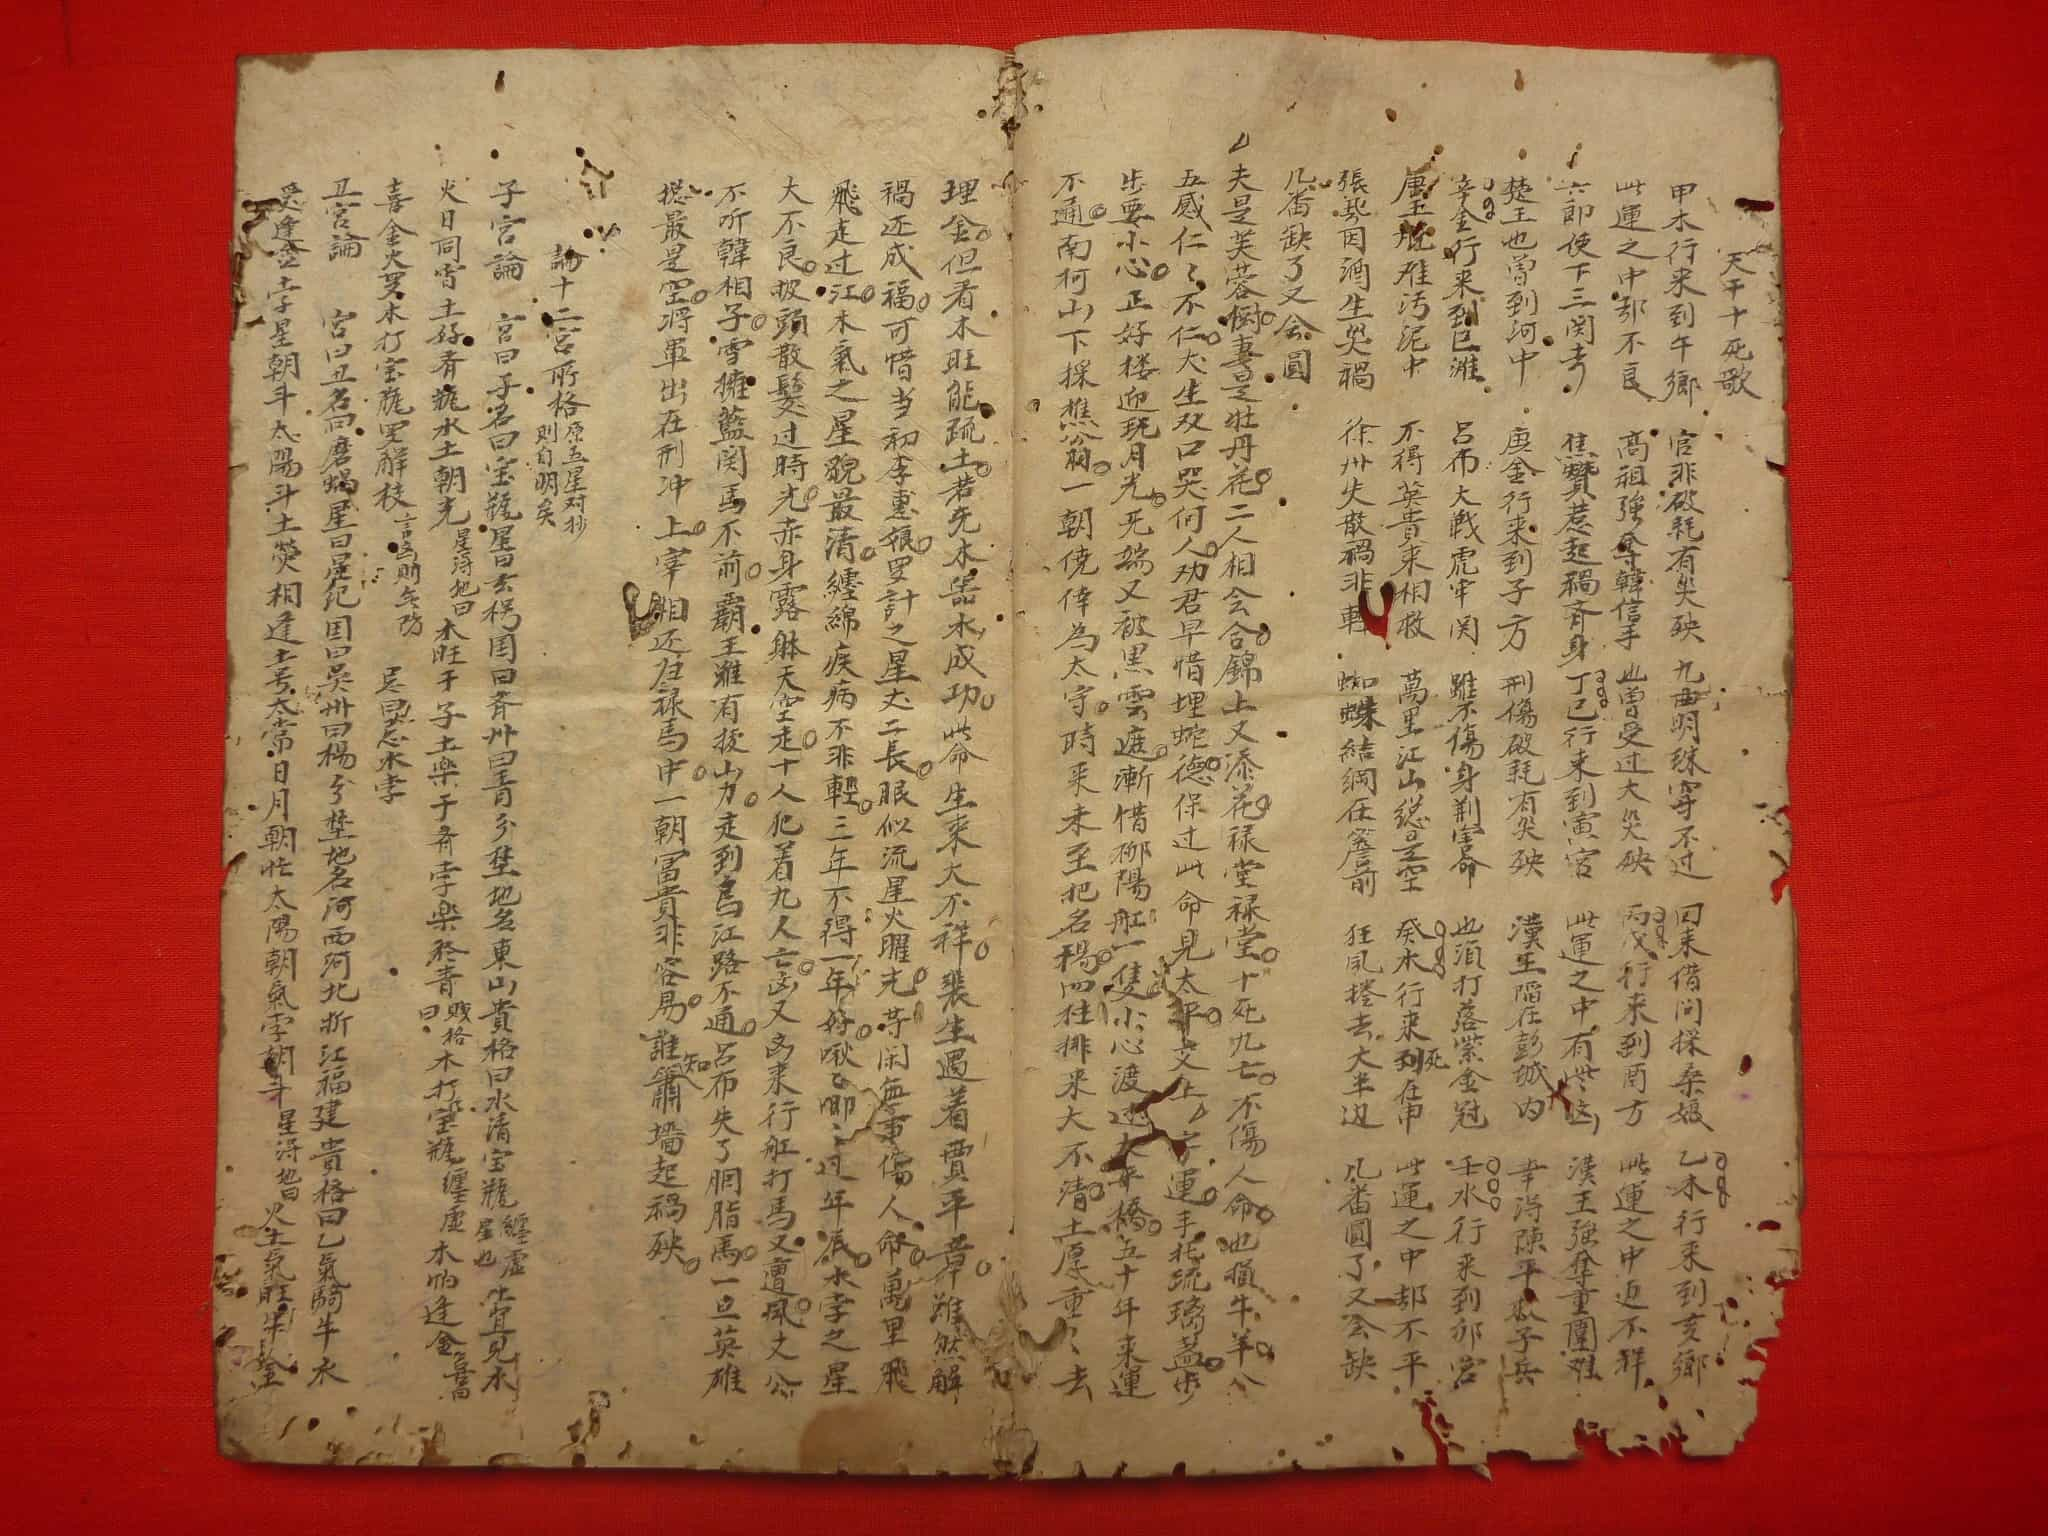 天干十死歌
甲木行来到午鄉 官非破耗有災殃 九曲明珠穿不过 囙来借问採桑娘 乙木行来到亥鄉
此運之中却不良 高祖強奪韓信手 也曾受过大災殃 丙戊行来到酉方 此運之中迈不祥
六郎使下三関 焦贊惹起禍斉身 丁己行来到寅宮 此運之中有 漢王強奪重圍难
楚王也曾到河中 庚金行来到子方 刑傷破耗有災殃 漢王陷在彭城内 幸得陳平 子兵
辛金行来到巳 吕布大戰虎牢関 雖不傷身刑害命 也須打落紫金冠 壬水行来到卯宮
唐王 难污泥中 不得英貴来相救 萬里江山総是空 癸水行来到死在申 此運之中却不平
張飛因酒生災禍 徐州失散禍非輕 蜘蛛結網在簷前 狂風捲去大半边 几番圓了又会缺
几番缺了又会圓
夫是芙蓉樹妻是牡丹花二人相会合錦上又添花禄堂禄堂十死九亡不傷人命也損牛羊公
五感仁〻不仁犬生双口哭何人劝君早惜埋蛇德保过此命見太平交上 字運手托琉璃盏步
步要小心正好楼迎玩月光死端又被黑雲遮漸惜柳陽舡一隻小心渡过太平橋五十年来運
不通南柯山下採樵翁一朝僥倖為太守時来未至把名楊四柱排来大不清土厚重〻去
理金但看木旺能疏土若无木 水成功此命生来大不祥裴生遇着賈平章雖然解
禍还成福可惜当初李惠娘罗計之星丈二長眼似流星火曜光等闲無事傷人命萬里飛
飛走过江木氣之星貌最清纏綿疾病不非輕三年不得一年好啾〻唧〻过年辰水孛之星
大不良披頭散髮过時光赤身露躰天空走十人犯着九人亡凶又凶来行舡打馬又遭風文公
不听韓相子雪擁藍関馬不前霸王雖有拔山力走到烏江路不通吕布失了胭脂馬一旦英雄
総最是空将軍出在刑冲上宰相还居禄馬中一朝富貴非容易誰知簫墻起禍殃
論十二宮所格 原五星对抄則自明矣
子宮論 宮曰子名曰宝瓶星曰玄枵国曰斉州曰青分埜地名東山貴格曰水清宝瓶 纏虛星也 宜見水
火日同宮土好斉瓶水土朝光 星得地曰 木旺于子土楽于斉孛楽於青 賎格曰 木打宝瓶 纏虛 木怕逢金 善
喜金火 木打宝瓶 解救 言為則無防 忌曰忌水孛
丑宮論 宮曰丑名曰磨蝎星曰星纪国曰吳州曰楊分埜地名河西河北折江福建貴格曰乙氣騎牛水
逢金土孛星朝斗太陽斗土熒相逢土号太常日月朝 太陽朝氣孛朝斗 星得地曰 火土氣旺牛 金